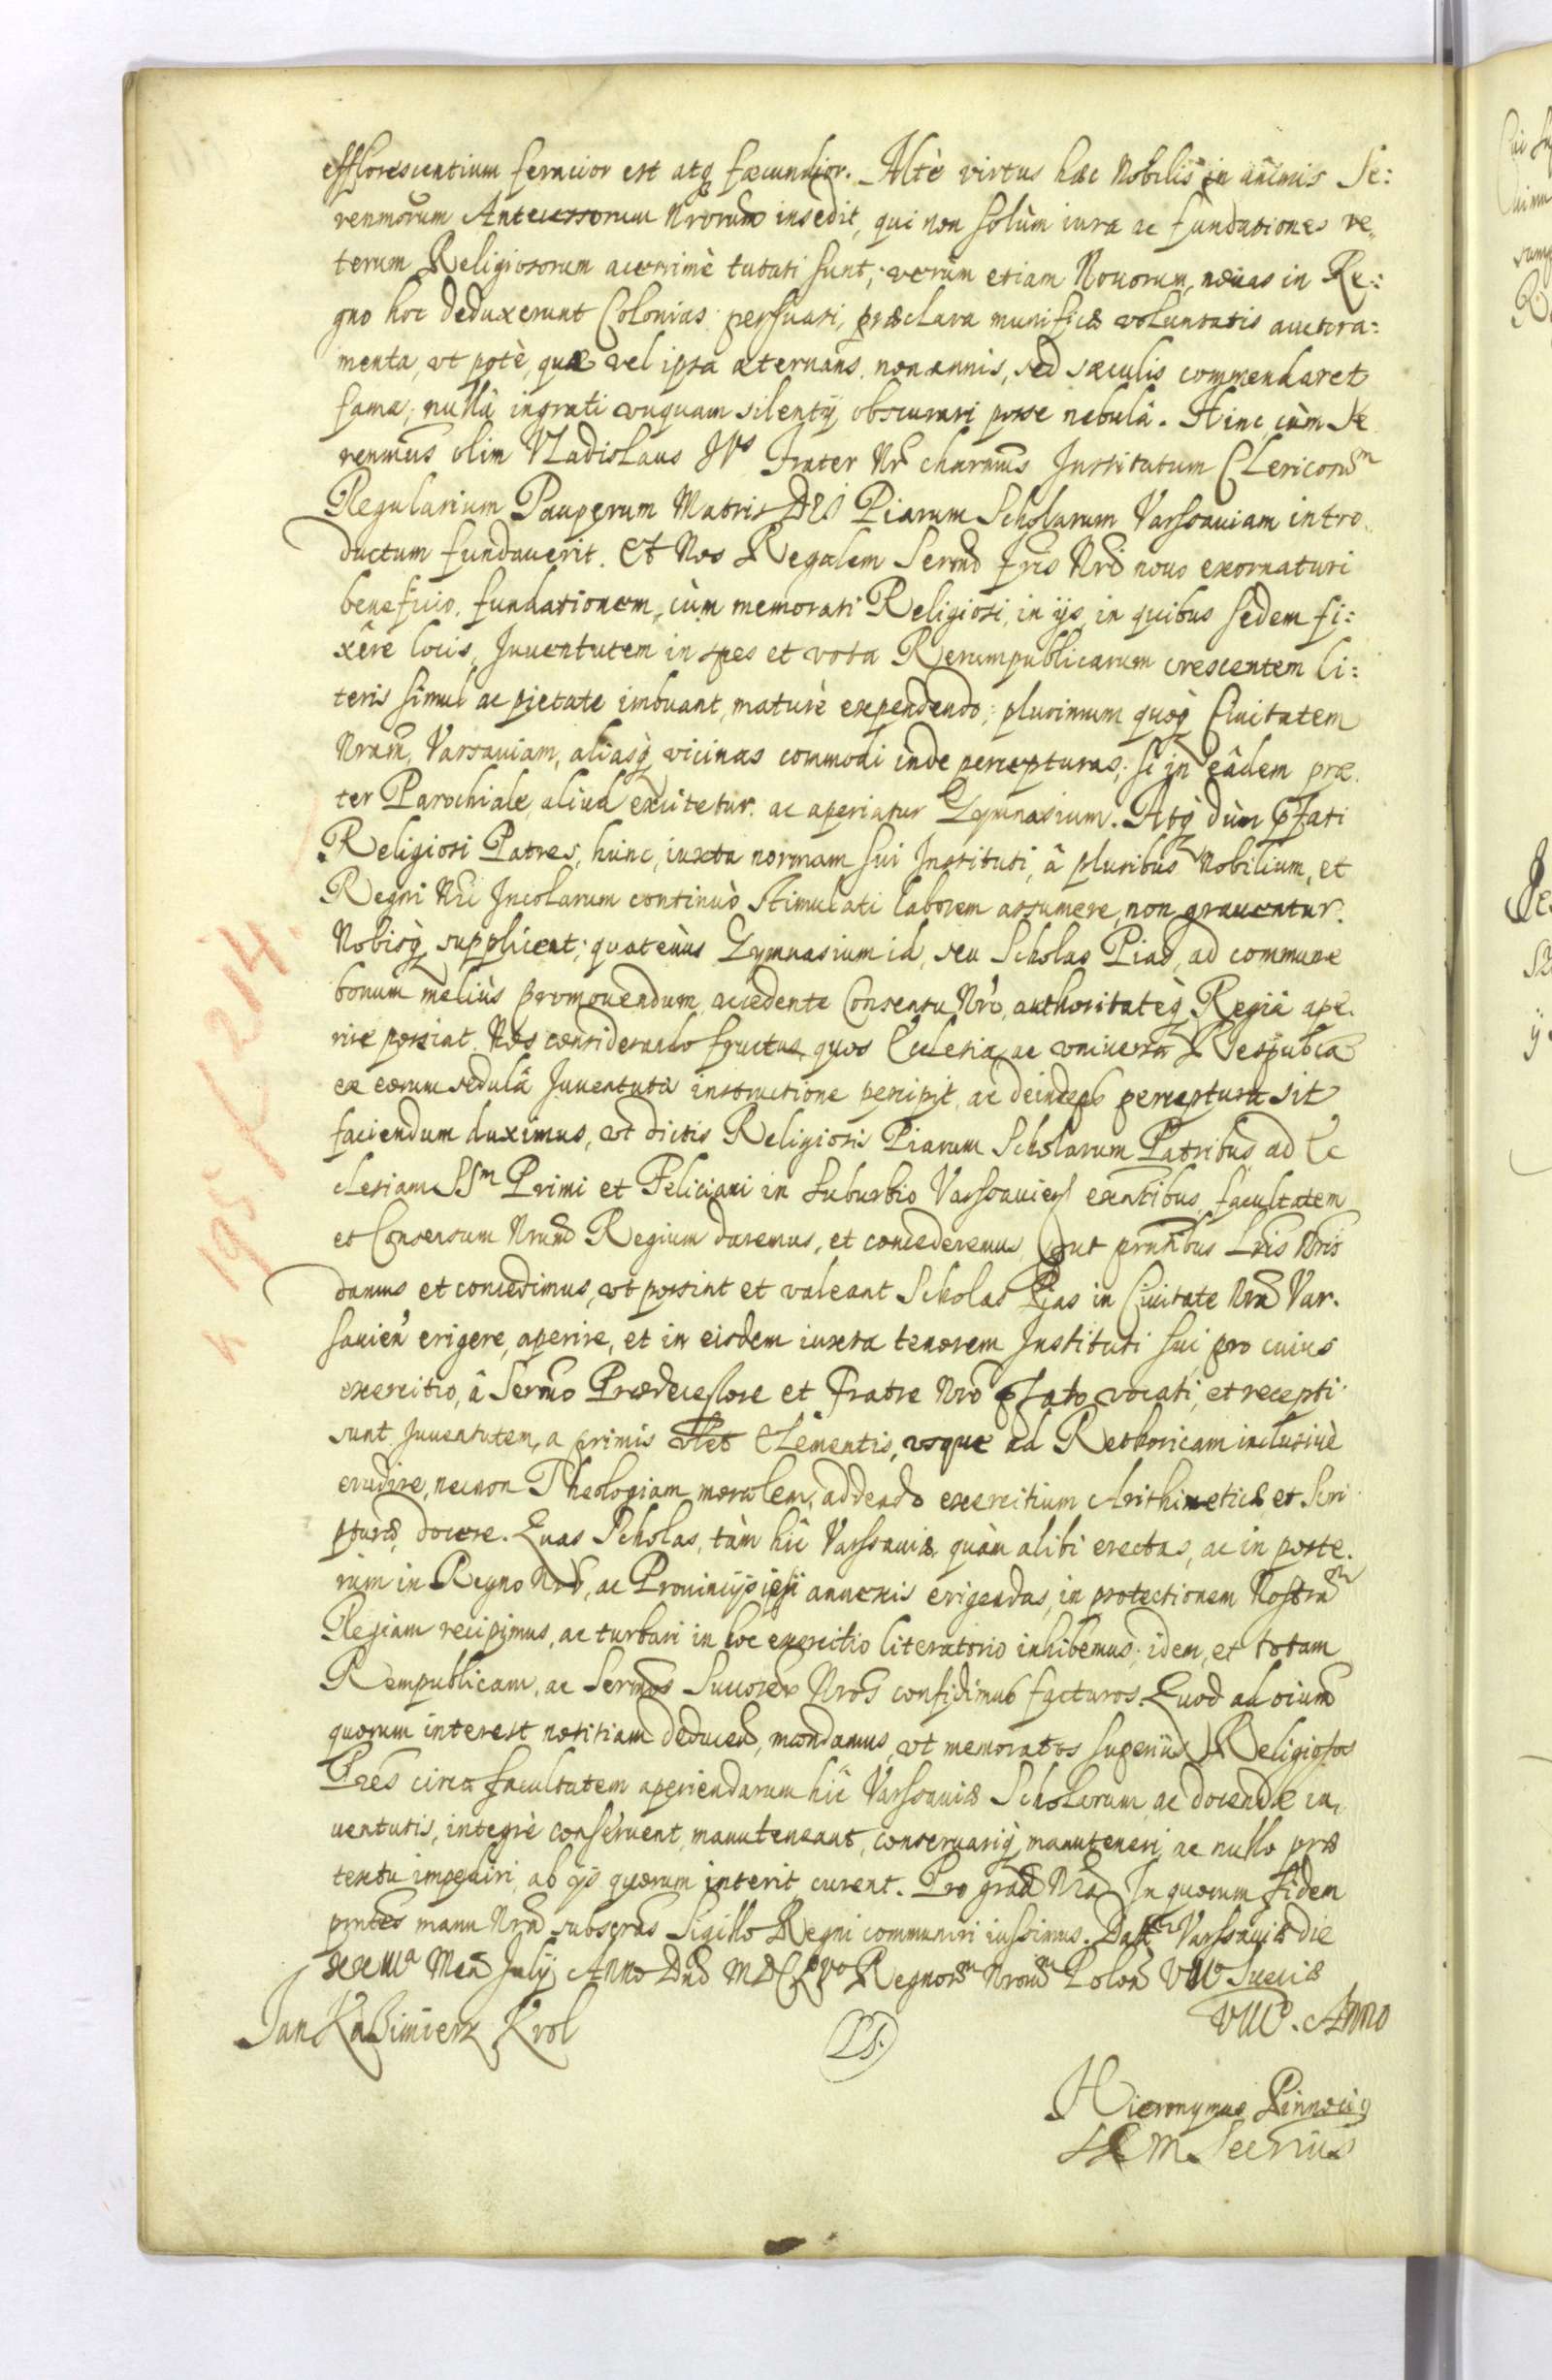 efflorescentium feracior est atq fæcundior. Altè virtus hæc Nobilis in animis Se:
renmorum Antecessorum Nrorum insedit, qui non solùm iura ac fundationes ve„
terum Religiosorum acerrimè tutati sunt; verùm etiam Nouorum, nouas in Re:
gno hoc deduxerunt Colonias: persuasi, præclara munificæ voluntatis auctora:
menta, vt potè, quæ vel ipsa æternans, non annis, sed sæculis commendaret
fama; nullà ingrati vnquam silentij obscurari posse nebulâ. Hinc cùm Se
renmus olim Vladislaus IVs Frater Nr charmus Institutum Clericorum
Regularium Pauperum Matris DEI Piarum Scholarum Varsauiam intro
ductum fundauerit. Et Nos Regalem Sermi Fris Nri nouo exornaturi
beneficio, fundationem, cùm memorati Religiosi, in ijs, in quibus sedem fi:
xêre locis, Juuentutem in spes et vota Rerumpublicarum crescentem li:
teris simul ac pietate imbuant, maturè expendendo; plurimum quoq Ciuitatem
Nram, Varsauiam, aliasq vicinas commodi inde percepturas; si in eâdem præ
ter Parochiale, aliud excitetur ac aperiatur Gymnasium. Atq dùm pfati
Religiosi Patres, hunc, iuxta normam sui Instituti, â pluribus Nobilium, et
Regni Nri Incolarum continuò stimulati laborem assumere, non grauentur.
Nobisq supplicent; quatenùs Gymnasium id, seu Scholas Pias, ad commune
bonum meliùs promouendum, accedente Consensu Nro, authoritateq Regiâ ape.
rire possint. Nos considerando fructus, quos Ecclesia, ac vniuersa Respublca
ex eorum sedulâ Juuentutis instructione percipit, ac deinceps perceptura sit
faciendum duximus, vt dictis Religiosis Piarum Scholarum Patribus ad Ec
clesiam SSm Primi et Feliciani in Suburbio Varsauien existibus, facultatem
et Consensum Nrum Regium daremus, et concederemus, put pruntibus Lris Nris
damus et concedimus, vt possint et valeant Scholas Pias in Ciuitate Nra Var.
sauien erigere, aperire, et in eisdem iuxta tenorem Instituti sui, pro cuius
exercitio, â Sermo Prædecessore et Fratre Nro pfato vocati, et recepti
sunt Juuentutem, a primis Elementis, vsque ad Rethoricam inclusiuè
erudire, necnon Theologiam moralem, addendo exercitium Arithmeticæ, et Scri
pturæ, docere. Quas Scholas, tàm hîc Varsauiæ quàm alibi erectas, ac in poste.
rum in Regno Nro, ac Prouincijs ipsi annexis erigendas, in protectionem Nostram
Regiam recipimus, ac turbari in hoc exercitio literatorio inhibemus; idem, et totam
Rempublicam, ac Sermos Succores Nros confidimus facturos. Quod ad oium
quorum interest notitiam deducen, mandamus, vt memoratos superiùs Religiosos
Pres circa facultatem aperiendarum hîc Varsauiæ Scholarum ac docendæ iu„
uentutis, integrè conseruent, manuteneant, conseruariq, manuteneri, ac nullo præ
textu impediri, ab ijs quorum interit, curent. Pro gratia Nra. In quorum fidem
prntes manu Nra subscras Sigillo Regni communiri iussimus. Datt Varsauiæ die
Mens Julij Anno Dni MDCLVo Regnorm Nrorum Polon VIIo Sueciæ
VIIIo. Anno
Jan Kazimierz Krol
LS.
Hieronymus Pinnocig
SRM. Secrius
n 195 K 214.